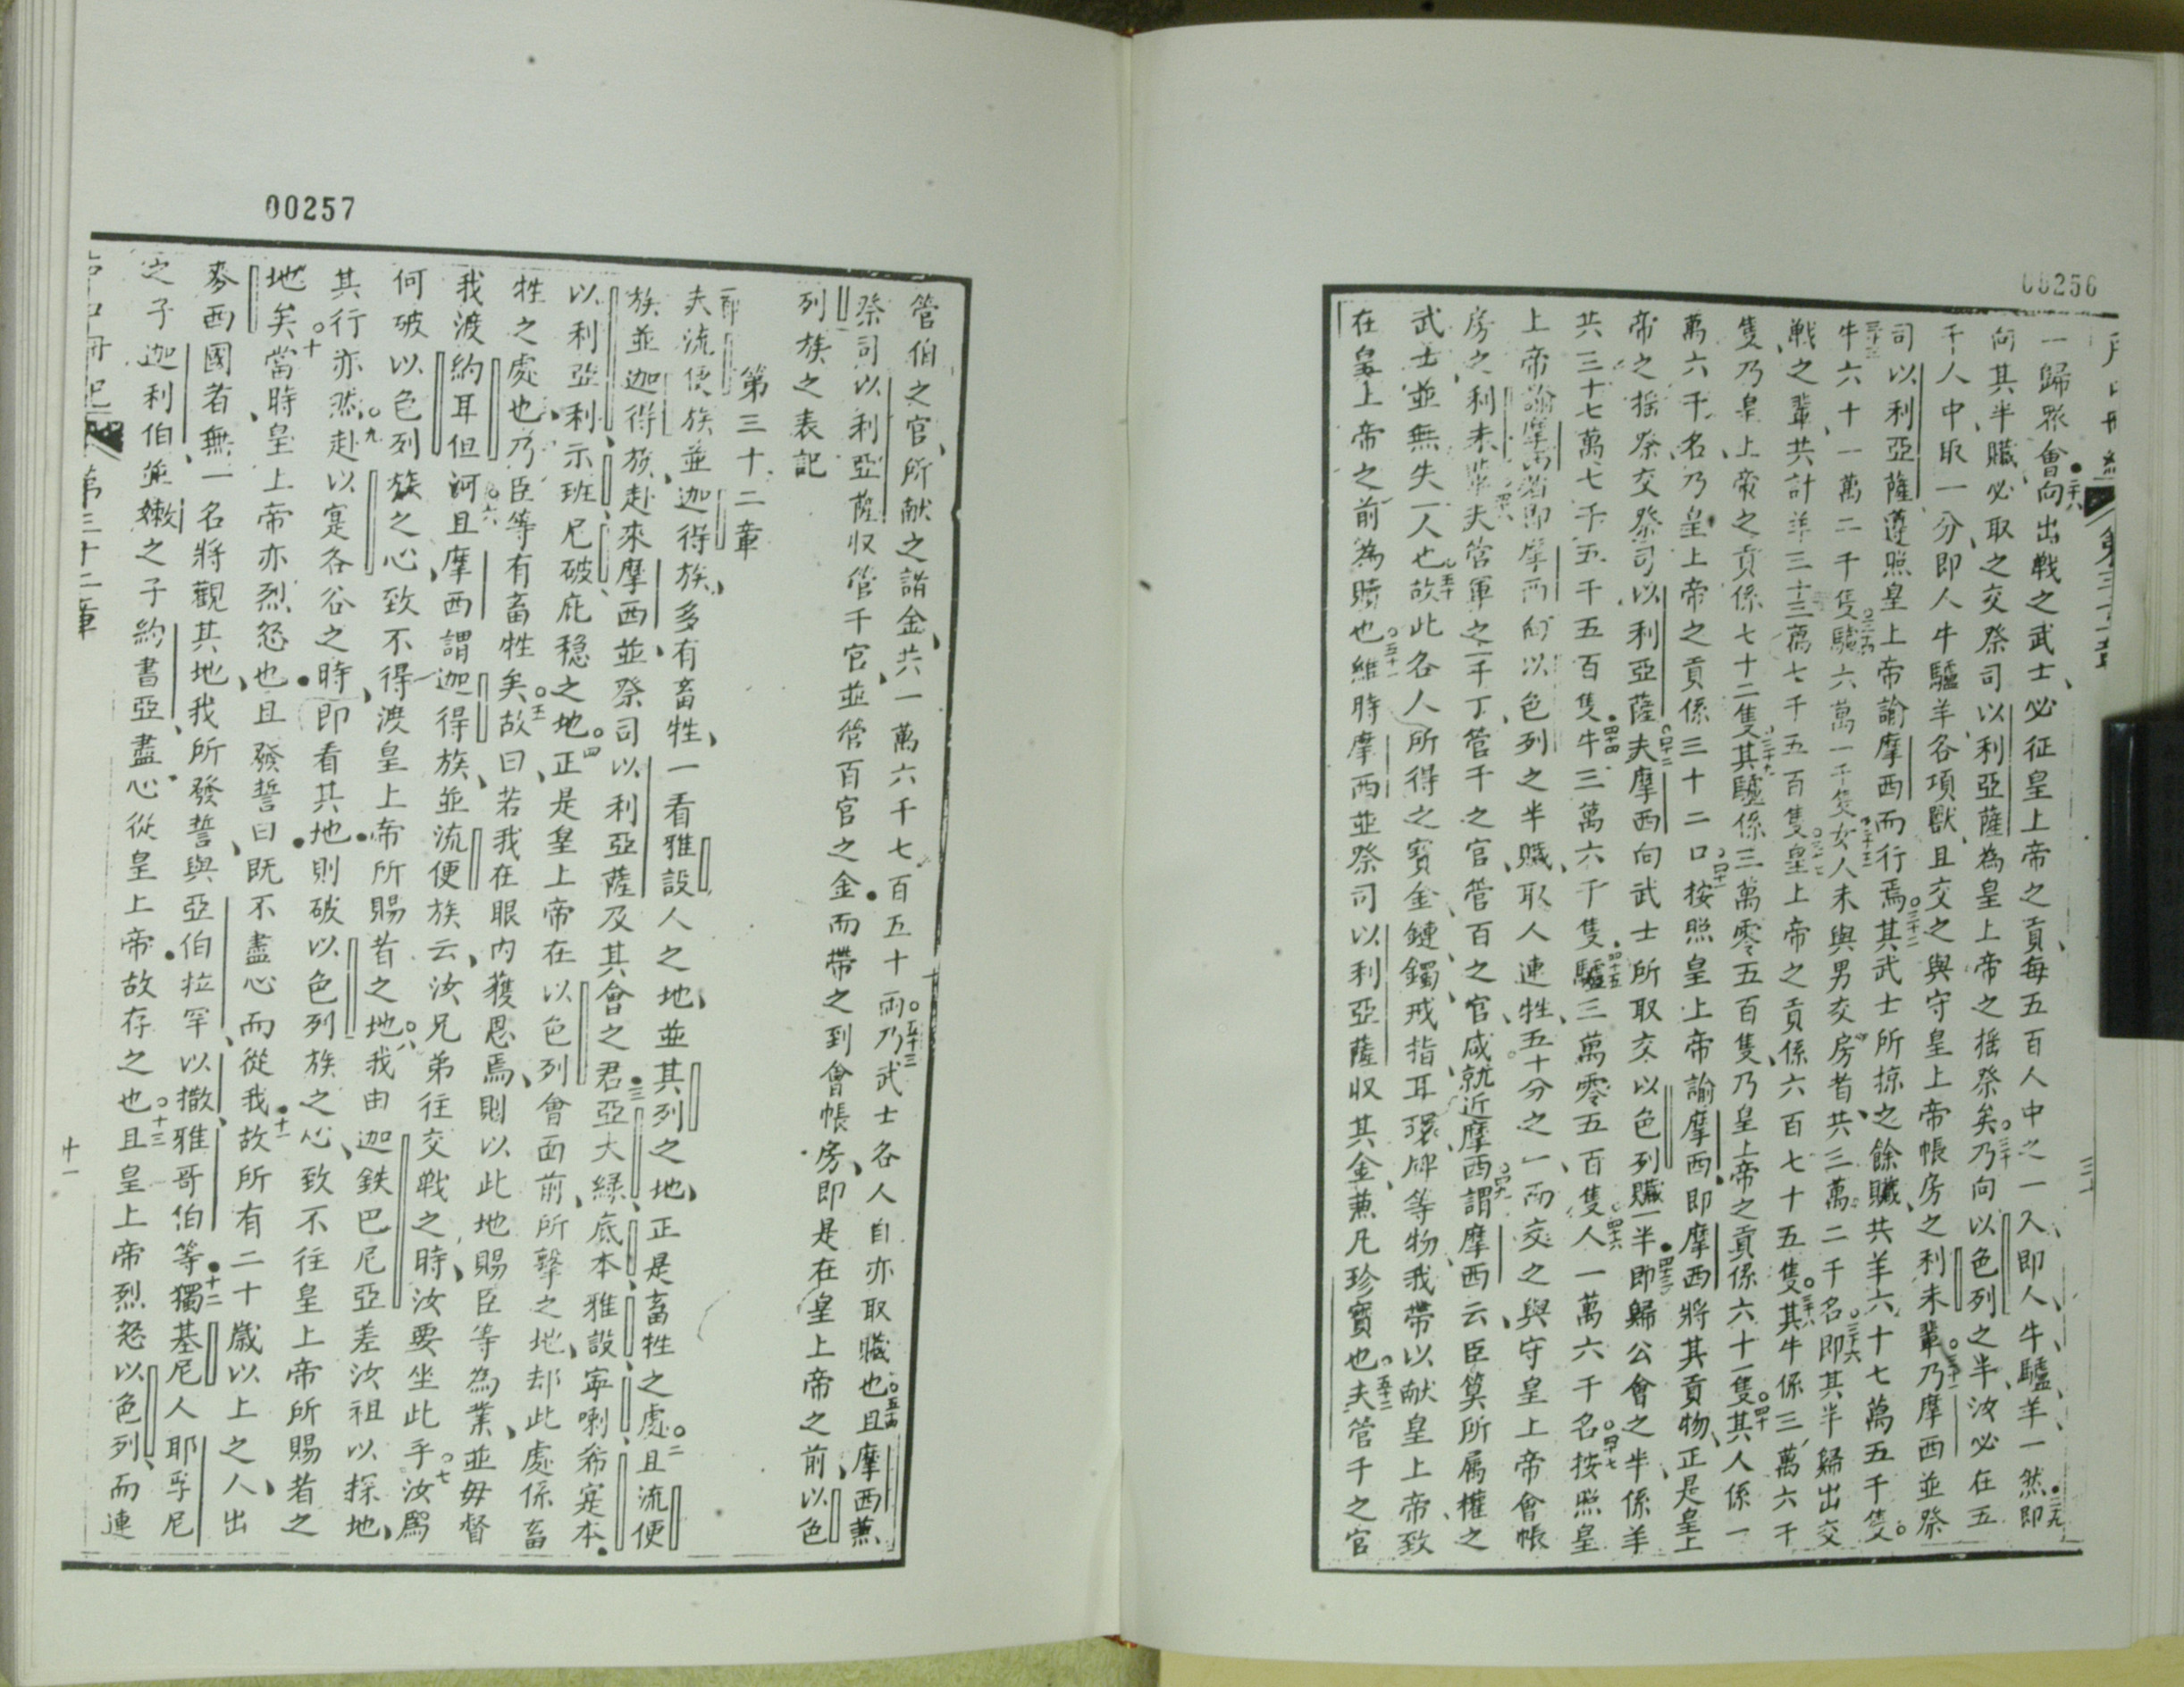 00256
一歸眾會●二十八向出戰之武士、必征皇上帝之貢、每五百人中之一、即人、牛、驢、羊、一然●二十九即
向其半贓、必取之交祭司以利亞薩、為皇上帝之搖祭矣。三十乃向以色列之半、汝必在五
千人中、取一分、即人牛驢羊、各項獸、且交之與守皇上帝帳房之利未輩。三十一乃摩西並祭
司以利亞薩、遵照皇上帝諭摩西而行焉。三十二其武士所掠之餘贓、共羊六十七萬五千隻。
三十三牛六十一萬二千隻。三十四驢六萬一千隻。三十五女人未與男交房者、共三萬二千名。三十六即其半歸出交
戰之輩、共計羊三十三萬七千五百隻。三十七皇上帝之貢係六百七十五隻。三十八其牛係三萬六千
隻、乃皇上帝之貢係七十二隻。三十九其驢係三萬零五百隻、乃皇上帝之貢係六十一隻。四十其人係一
萬六千名、乃皇上帝之貢係三十二口。四十一按照皇上帝諭摩西、即摩西將其貢物、正是皇上
帝之搖祭、交祭司以利亞薩。四十二夫摩西向武士所取交以色列贓一半●四十三即歸公會之半、係羊
共三十七萬七千五千五百隻●四十四牛三萬六千隻●四十五驢三萬零五百隻。四十六人一萬六千名。四十七按照皇
上帝諭摩西者、即摩西向以色列之半贓、取人連牲、五十分之一、而交之與守皇上帝會帳
房之利未輩。四十八夫管軍之一千丁、管千之官、管百之官、咸就近摩西。四十九謂摩西云、臣算所屬權之
武士、並無失一人也。五十故此各人所得之寶金、鏈、鐲、戒指、耳環、牌等物、我帶以獻皇上帝、致
在皇上帝之前為贖也。五十一維時摩西並祭司以利亞薩收其金、兼凡珍寶也。五十二夫管千之官
00257
管伯之官、所獻之諸金、共一萬六千七百五十兩。五十三乃武士各人自亦取贓也。五十四且摩西兼
祭司以利亞薩收管千官、並管百官之金、而帶之到會帳房、即是在皇上帝之前、以色
列族之表記
第三十二章
一節夫流便族並迦得族、多有畜牲、一看雅設人之地、並其列之地、正是畜牲之處。二且流便
族、並迦得族、赴來摩西、並祭司以利亞薩及其會之君●三亞大綠、底本、雅設、寧喇、希寔本、
以利亞利、示班、尼破、庇穩之地。四正是皇上帝在以色列會面前、所擊之地、却此處係畜
牲之處也、乃臣等有畜牲矣。五故曰、若我在眼內獲恩焉、則以此地賜臣等為業、並毋督
我渡約耳但河。六且摩西謂迦得族、並流便族云、汝兄弟往交戰之時、汝要坐此乎。七汝為
何破以色列族之心、致不得渡皇上帝所賜者之地。八我由迦鉄巴尼亞差汝祖以探地、
其行亦然。九赴以寔各谷之時、即看其地、則破以色列族之心、致不往皇上帝所賜者之
地矣。十當時皇上帝亦烈怒也、且發誓曰、既不盡心而從我●十一故所有二十歲以上之人、出
麥西國者、無一名將觀其地、我所發誓與亞伯拉罕、以撒、雅哥伯等●十二獨基尼人耶孚尼
之子迦利伯、並嫩之子約書亞、盡心從皇上帝、故存之也。十三且皇上帝烈怒以色列、而連
戶口冊紀 第三十二章 十一